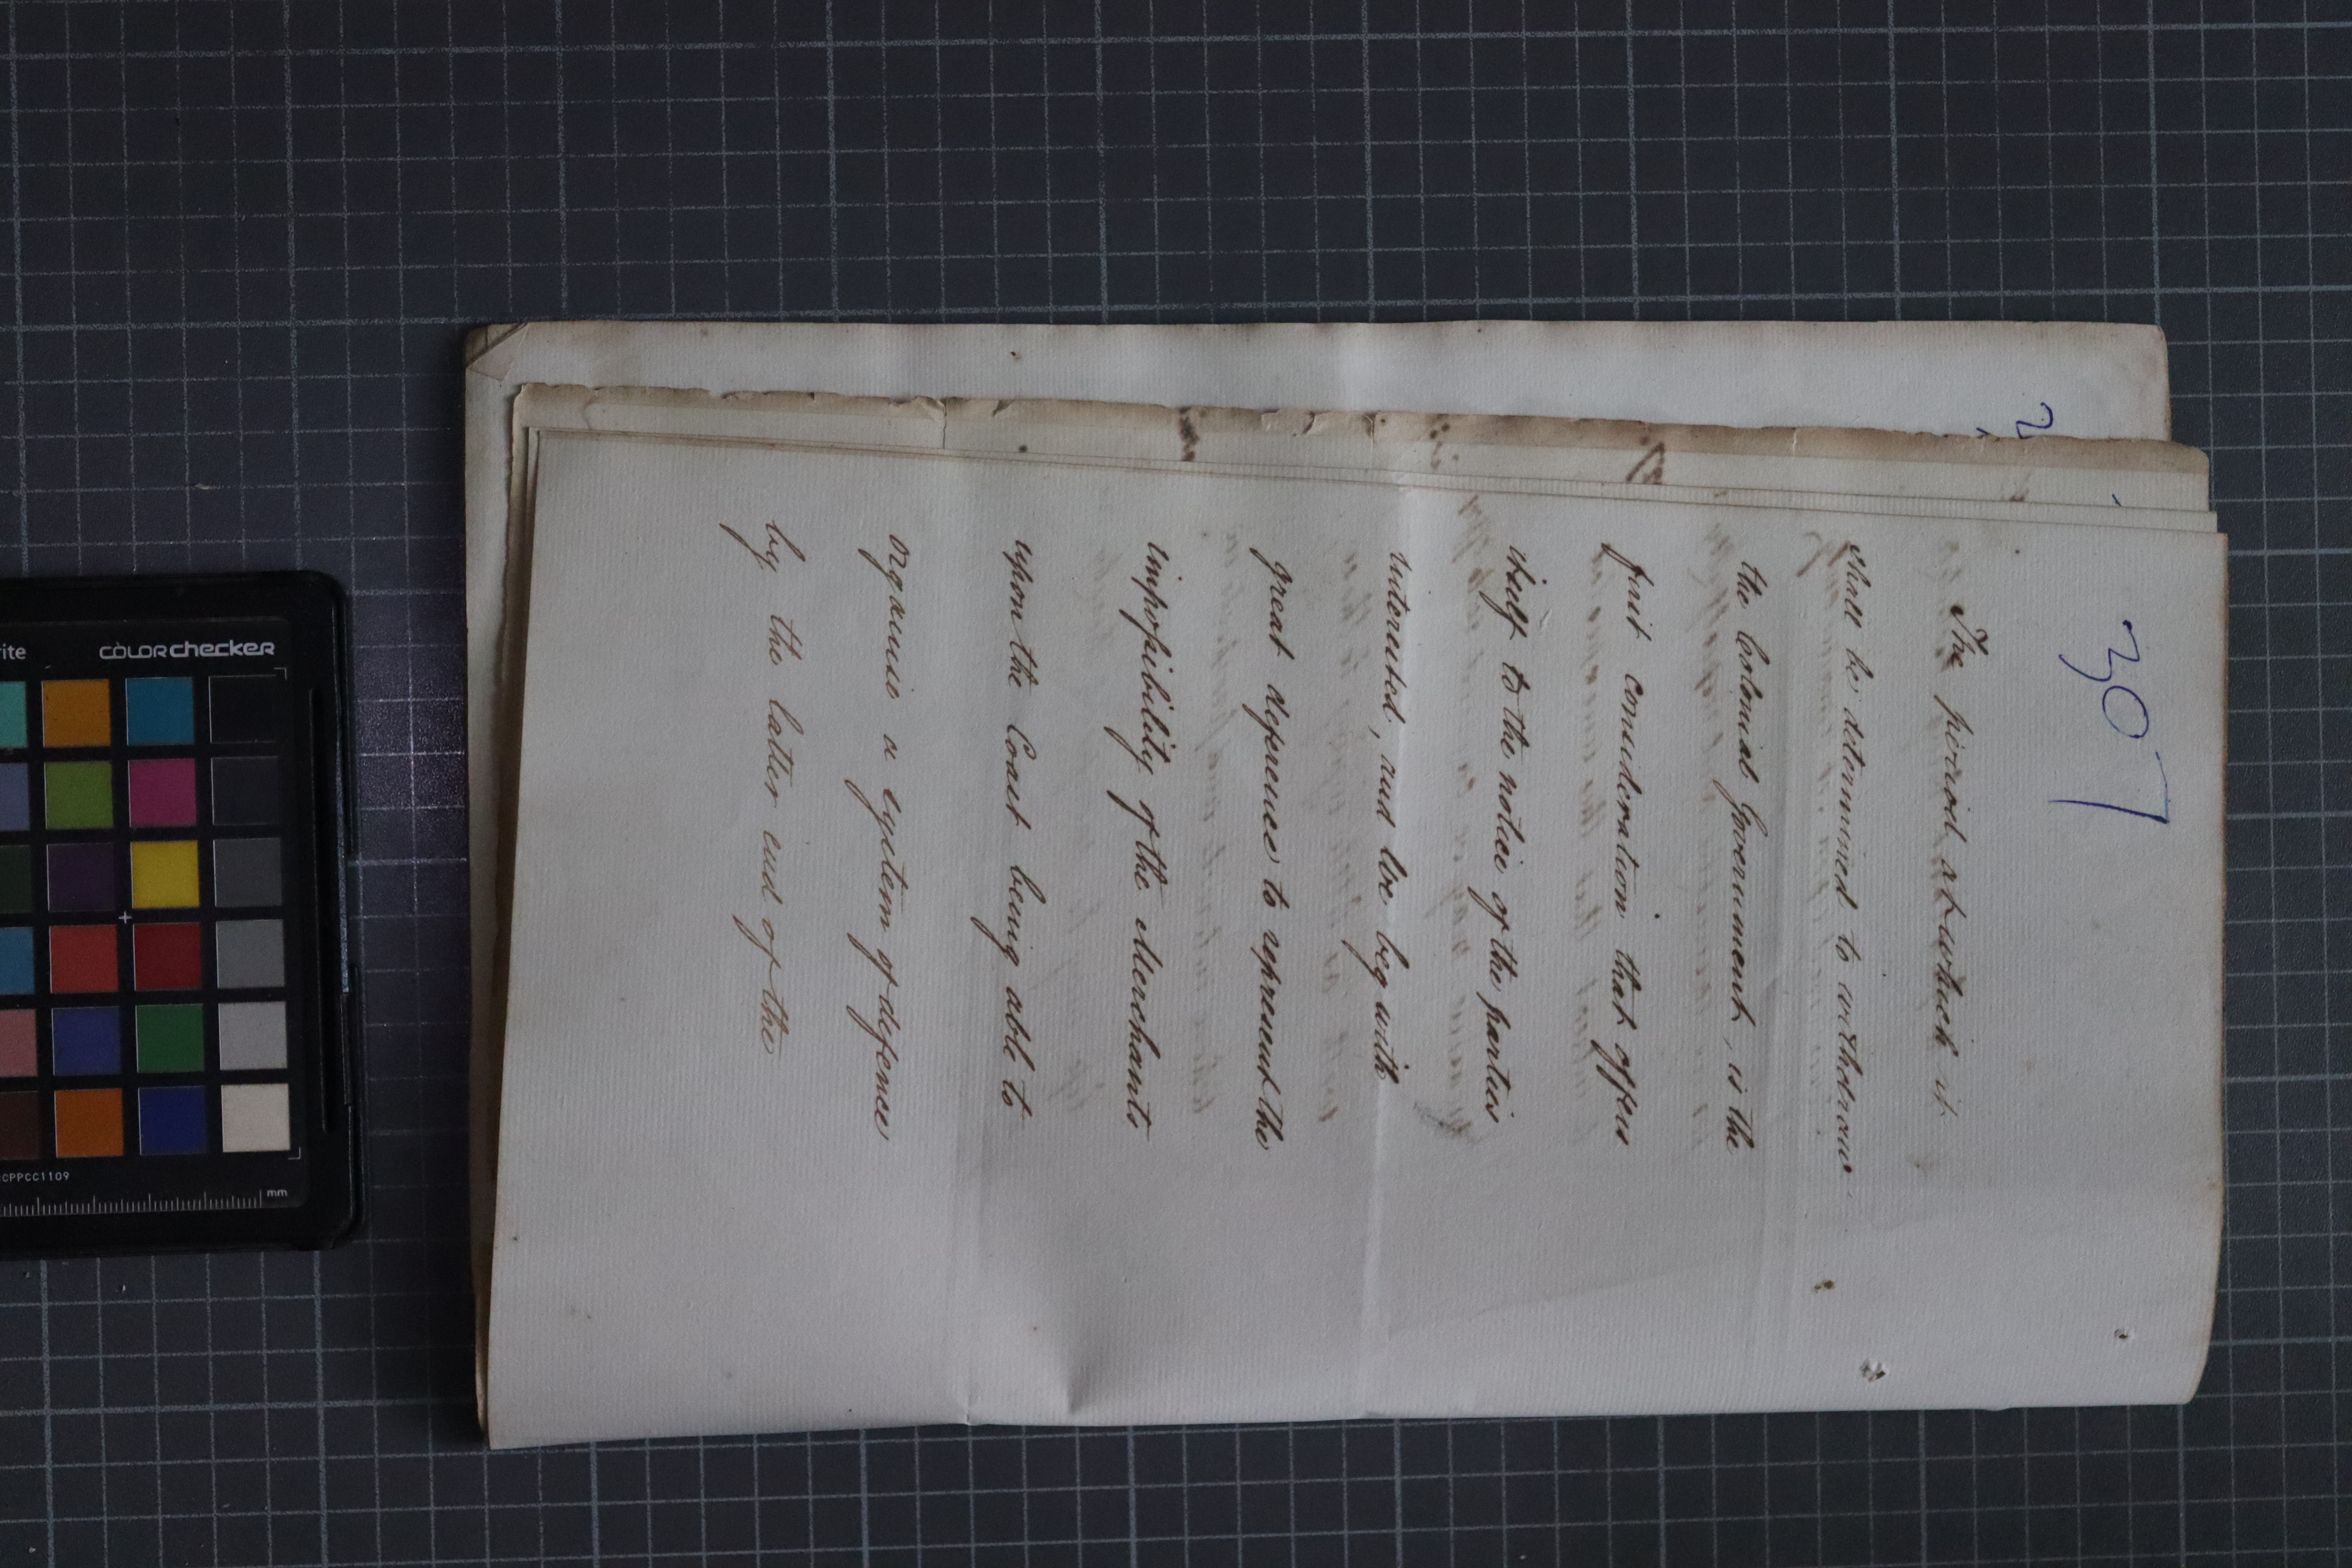 307
The period at which it
shall be determined to withdraw
the Colonial Government, is the
first consideration that offers
itself to the notice of the parties
interested, and we beg with
great deference to represent the
impossibility of the Merchants
upon the Coast being able to
organise a system of defence
by the latter end of the
2
rite
colorchecker
CCPPCC1109
mm